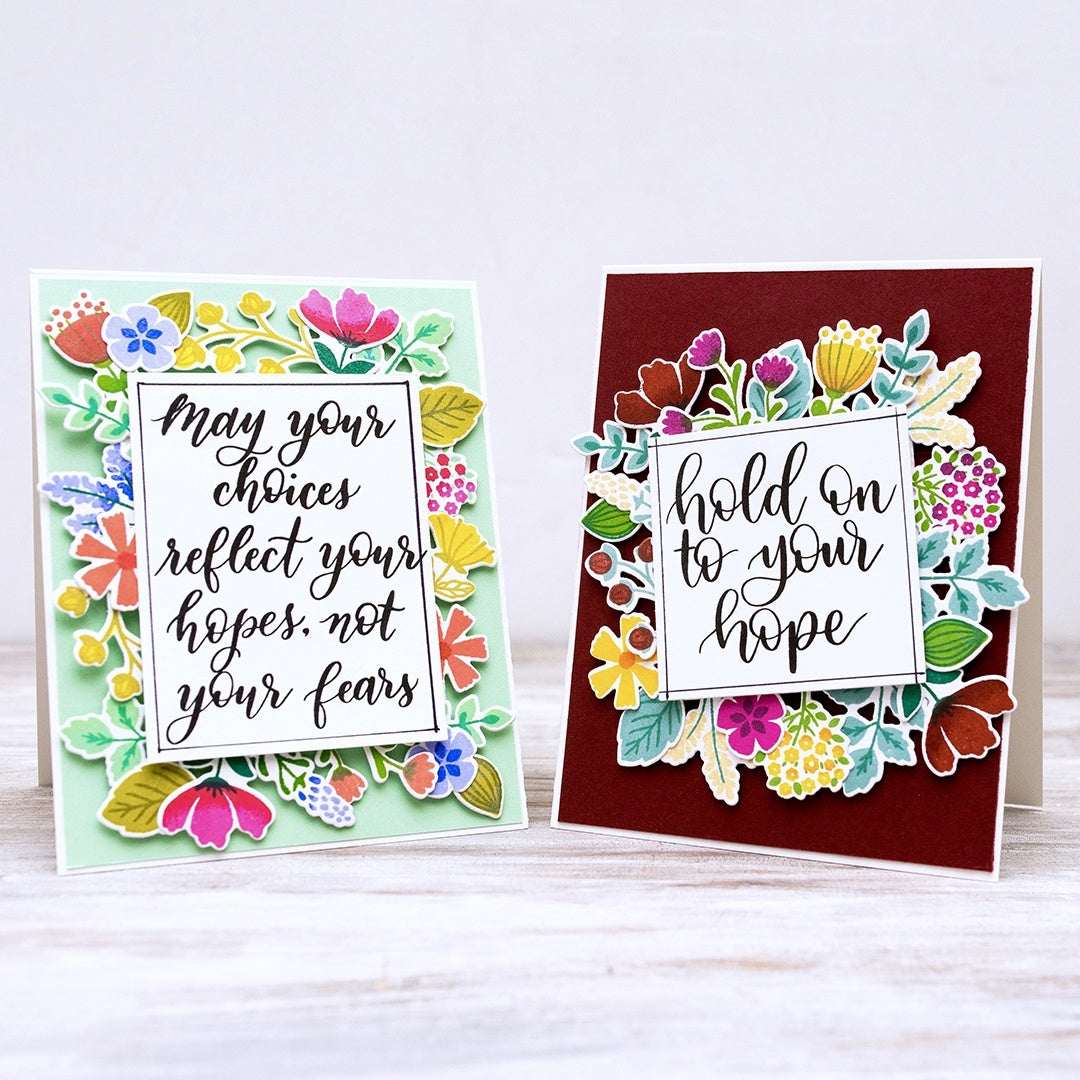 May your
choices
reflect your
hopes, not
your fears
hold on
to your
hope